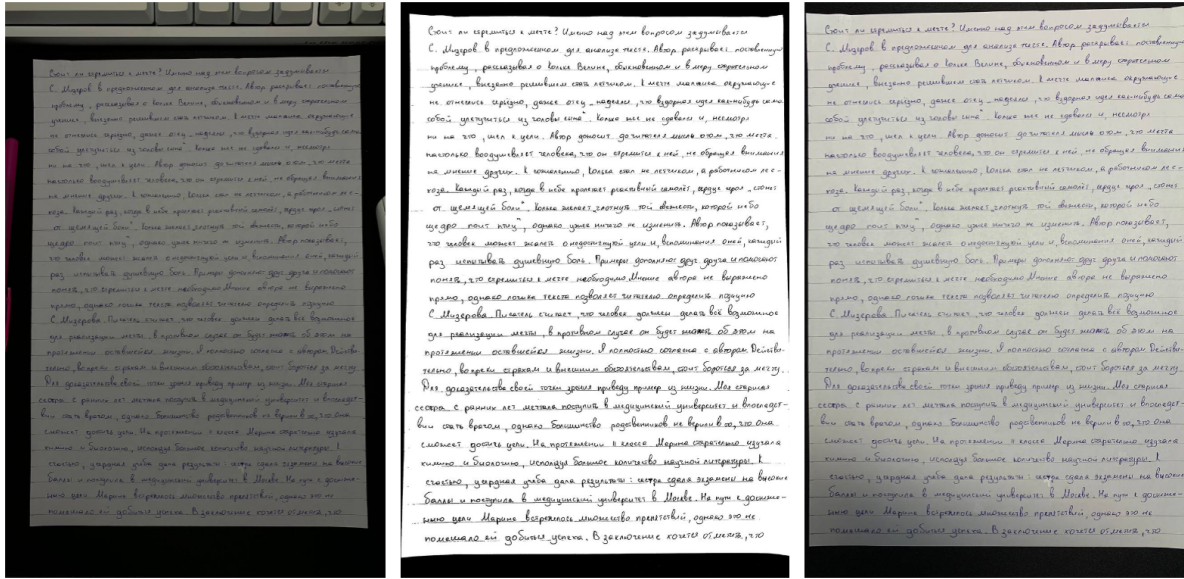 Стоит ли стремиться к мечте? Именно над этим вопросом задумывается
С. Мизеров в предложенном для анализа тексте. Автор раскрывает поставленную
проблему, рассказывая о Кольке Велине, обыкновенном и в меру старательном
ученике, внезапно решившем стать лётчиком. К мечте мальчика окружающие
не отнеслись серьёзно, даже отец „надеялся, что вздорная идея как-нибудь сама
собой улетучится из головы сына“. Колька же не сдавался и, несмотря
ни на что, шёл к цели. Автор доносит до читателя мысль о том, что мечта
настолько воодушевляет человека, что он стремится к ней, не обращая внимания
на мнение других. К сожалению, Колька стал не лётчиком, а работником лес-
хоза. Каждый раз, когда в небе пролетает реактивный самолёт, сердце героя „стонет
от щемящей боли“. Колька желает „глотнуть той свежести, которой небо
щедро поит птиц“, однако уже ничего не изменить. Автор показывает,
что человек может жалеть о недостигнутой цели и, вспоминая о ней, каждый
раз испытывать душевную боль. Примеры дополняют друг друга и помогают
понять, что стремиться к мечте необходимо. Мнение автора не выражено
прямо, однако логика текста позволяет читателю определить позицию
С. Мизерова. Писатель считает, что человек должен делать всё возможное
для реализации мечты, в противном случае он будет жалеть об этом на
протяжении оставшейся жизни. Я полностью согласна с автором. Действи-
тельно, вопреки страхам и внешним обстоятельствам, стоит бороться за мечту.
Для доказательства своей точки зрения приведу пример из жизни. Моя старшая
сестра с ранних лет мечтала поступить в медицинский университет и впоследст-
вии стать врачом, однако большинство родственников не верили в то, что она
сможет достичь цели. На протяжении 11 класса Марина старательно изучала
химию и биологию, используя большое количество научной литературы. К
счастью, усердная учёба дала результаты: сестра сдала экзамены на высокие
баллы и поступила в медицинский университет в Москве. На пути к достиже-
нию цели Марине встретилось множество препятствий, однако это не
помешало ей добиться успеха. В заключение хочется отметить, что